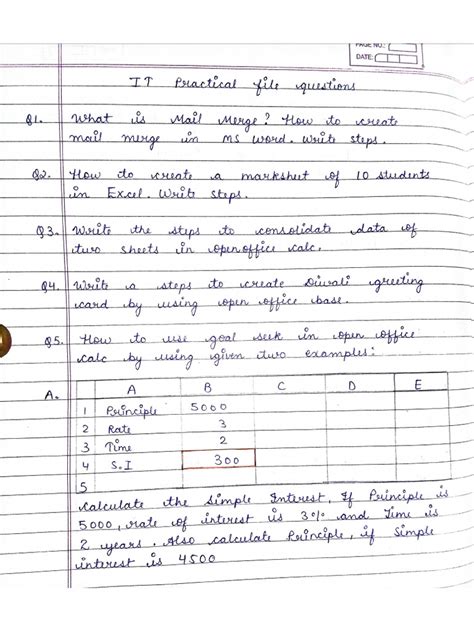 PAGE NO.:
DATE:
IT Practical file questions
Q1. What is Mail Merge? How to create
mail merge in MS Word. Write steps.
Q2. How to create a marksheet of 10 students
in Excel. Write steps.
Q3. Write the steps to consolidate data of
two sheets in openoffice calc.
Q4. Write a steps to create Diwali greeting
card by using open office base.
Q5. How to use goal seek in open office
calc by using given two examples:
A. A B C D E
1 Principle 5000
2 Rate 3
3 Time 2
4 S.I 300
5
Calculate the Simple Interest, If Principle is
5000, rate of interest is 3% and Time is
2 years. Also calculate Principle, if Simple
interest is 4500